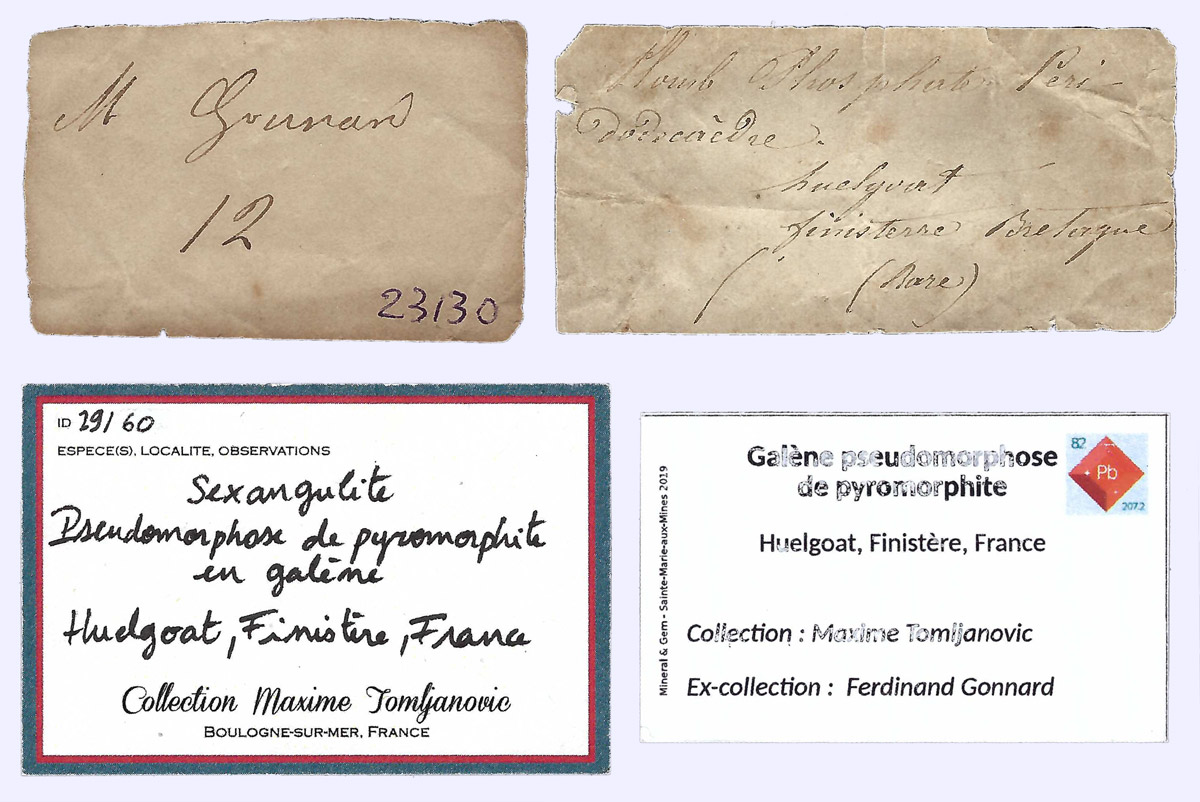 M Gonnard
12
23130
Plomb Phosphaté Péri-
dodecaèdre.
huelgoat
finisterre Bretagne
(Rare)
ID 29/60
ESPECE(S), LOCALITE, OBSERVATIONS
Sexangulite
Pseudomorphose de pyromorphite
en galène
Huelgoat, Finistère, France
Collection Maxime Tomljanovic
BOULOGNE-SUR-MER, FRANCE
Mineral & Gem - Sainte-Marie-aux-Mines 2019
Galène pseudomorphose
de pyromorphite
82
Pb
207.2
Huelgoat, Finistère, France
Collection : Maxime Tomljanovic
Ex-collection : Ferdinand Gonnard